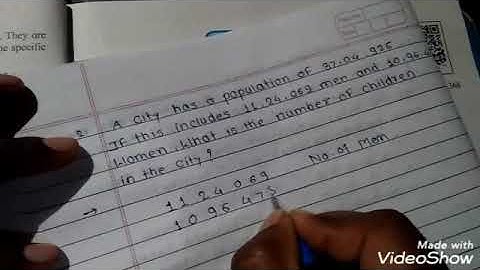 . They are
he specific
A city has a population of 37,04,926
If this includes 11,24,069 men and 10,96,4
Women. What is the number of children
in the city?
→ 11 24 069 No of Men
10 96 473
Made with
VideoShow